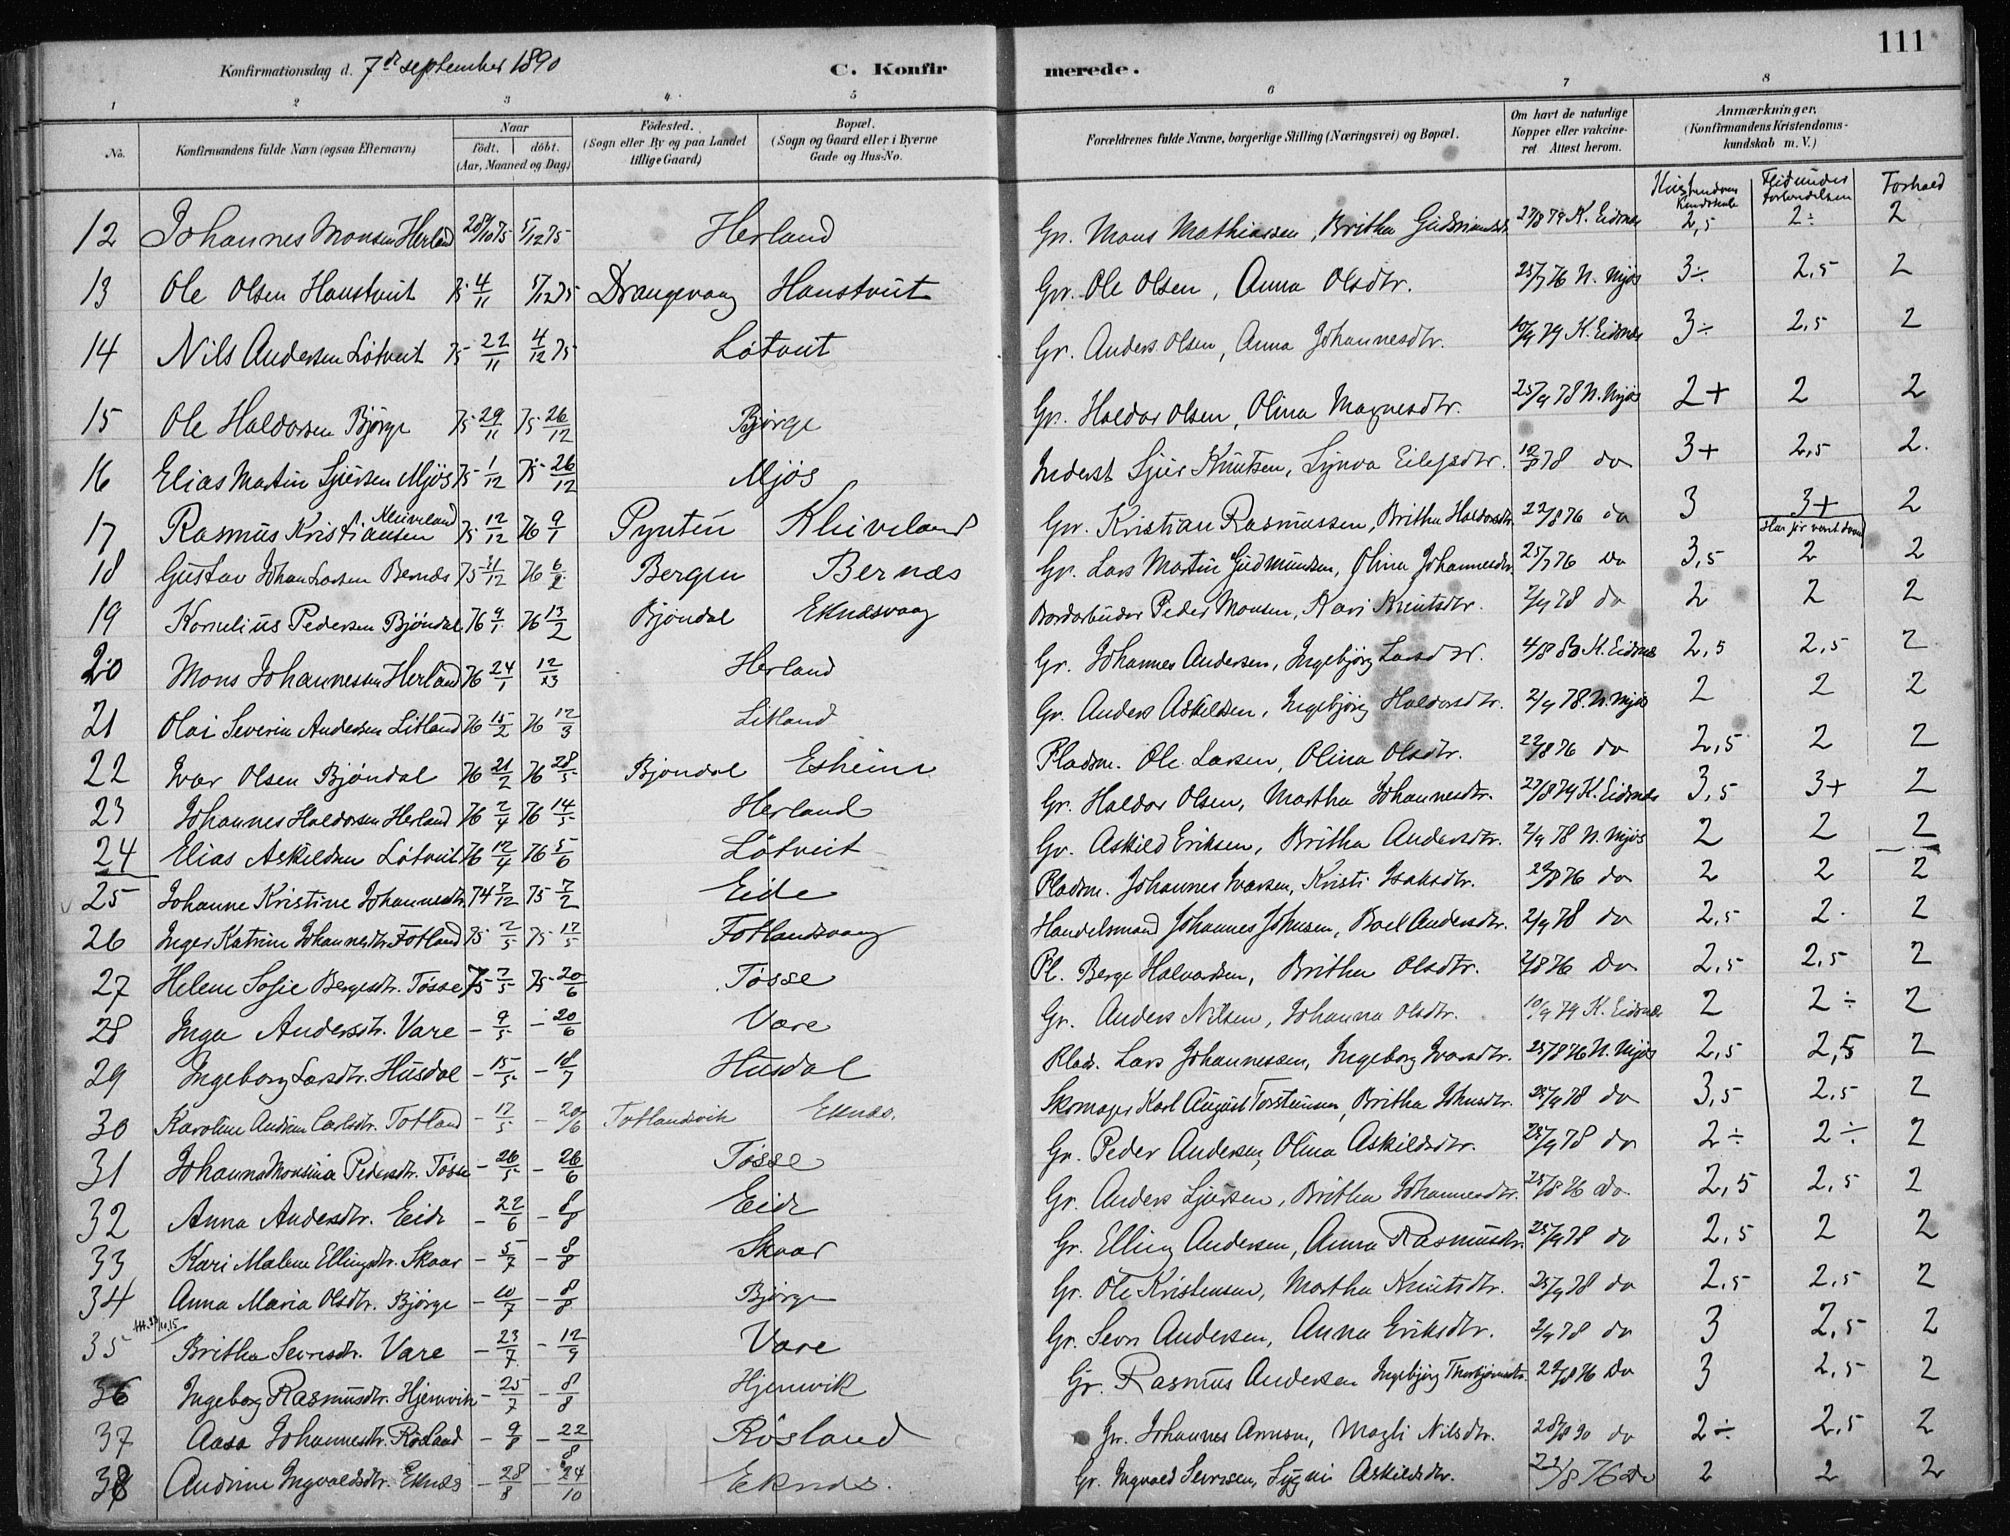 111
Konfirmationsdag d. 7de september 1890
C. Konfirmerede.
1 2 3 4 5 6 7 8
No.
Konfirmandens fulde Navn (ogsaa Efternavn)
Naar
født. døbt.
(Aar, Maaned og Dag)
Fødested.
(Sogn eller By og paa Landet
tillige Gaard)
Bopæl.
(Sogn og Gaard eller i Byerne
Gade og Hus-No.
Forældrenes fulde Navne, borgerlige Stilling (Næringsvei) og Bopæl.
Om havt de naturlige
Kopper eller vakcine-
ret. Attest herom.
Anmærkninger.
(Konfirmandens Kristendoms-
kundskab m. V.)
Kristendoms Kundskab Flid under Forberedelsen Forhold
12 Johannes Monsen Herland 28/10 75 5/12 75 Herland Gr. Mons Mathiassen, Britha Gudmundsdtr. 27/8 79 K. Eidsnes 2,5 2÷ 2
13 Ole Olsen Haustveit 75 4/11 5/12 75 Drangevaag Haustveit Gr. Ole Olsen, Anna Olsdtr. 25/7 76 N. Mjøs 3÷ 2,5 2
14 Nils Andersen Løtveit 75 22/11 4/12 75 Løtveit Gr. Anders Olsen, Anna Johannesdtr. 10/9 79 K. Eidsnes 3÷ 2,5 2
15 Ole Haldorsen Bjørge 75 29/11 75 26/12 Bjørge Gr. Haldor Olsen, Olina Magnesdtr. 25/9 78 N. Mjøs 2+ 2 2
16 Elias Martin Sjursen Mjøs 75 1/12 75 26/12 Mjøs Inderst Sjur Knutsen, Synva Eilefsdtr. 78 do 3+ 2,5 2.
17 Rasmus Kristiansen Kleiveland 75 12/12 76 9/1 Pynten Kleiveland Gr. Kristian Rasmussen, Britha Haldorsdtr. 22/8 76 do 3 3+ 2
18 Gustav Johan Larsen Bernæs 75 31/12 76 6/2 Bergen Bernæs Gr. Lars Martin Gudmundsen, Olina Johannesdtr. 25/7 76 do 3,5 2 2
19 Kornelius Pedersen Bjøndal 76 9/1 76 13/2 Bjøndal Eknæsvaag Peder Monsen, Kari Knutsdtr. 2/9 78 do 2 2 2
20 Mons Johannessen Herland 76 24/1 12/3 Herland Gr. Johannes Andersen, Ingebjørg Larsdtr. 4/8 80 K. Eidsnes 2,5 2,5 2
21 Olai Severin Andersen Litland 76 15/2 76 12/3 Litland Gr. Anders Askildsen, Ingebjørg Haldorsdtr. 2/9 78. N. Mjøs 2 2 2
22 Ivar Olsen Bjøndal 76 21/2 76 28/5 Bjøndal Esheim Pladsm. Ole Larsen, Olina Olsdtr. 22/8 76 do 2,5 2 2
23 Johannes Haldorsen Herland 76 2/4 76 14/5 Herland Gr. Haldor Olsen, Martha Johannesdtr. 27/8 79 K. Eidsnes 3,5 3+ 2
24 Elias Askildsen Løtveit 76 12/4 76 5/6 Løtveit Gr. Askild Eriksen, Britha Andersdtr. 2/9 78 N. Mjøs 2 2 2
25 Johanne Kristine Johannesdtr. 74 7/12 75 7/2 Eide Pladsm. Johannes Ivarsen, Kristi Isaksdtr. 22/8 76 do 2 2 2
26 Inger Katrine Johannesdtr. Totland 75 2/5 75 17/5 Totlandsvaag Handelsmand Johannes Johnsen, Boel Andersdtr. 2/9 78 do 2,5 2. 2
27 Helene Sofie Bergesdtr. Tøsse 75 7/5 75 20/6 Tøsse Pl. Berge Halvorsen, Britha Olsdtr. 76 Do 2,5 2,5 2
28 Inga Andersdtr. Vare - 9/5 - 20/6 Vare Gr. Anders Nilsen, Johanna Olsdtr. 10/9 79 K. Eidsnes 2 2÷ 2
29 Ingeborg Larsdtr. Husdal - 15/5 - 18/7 Husdal Plads. Lars Johannessen, Ingeborg Ivarsdtr. 25/8 76 N. Mjøs 2,5 2,5 2
30 Karoline Andrine Carlsdtr. Totland - 17/5 - 20/6 Totlandsvik Eknæs. Skomager Karl August Torstensen, Britha Johnsdtr. 25/9 78 do 3,5 2,5 2
31 Johanna Monsina Pedersdtr. Tøsse - 26/5 - 26/6 Tøsse Gr. Peder Andersen, Olina Askildsdtr. 25/9 78 do 2÷ 2÷ 2
32 Anna Andersdtr. Eide - 22/6 - 8/8 Eide Gr. Anders Sjursen, Britha Johannesdtr. 25/8 76 do 2,5 2,5 2
33 Kari Malene Ellingsdtr. Skaar - 5/7 - 8/8 Skaar Gr. Elling Andersen, Anna Rasmusdtr. 25/9 78 do 2,5 2 2
34 Anna Maria Olsdtr. Bjørge - 10/7 - 8/8 Bjørge Gr. Ole Kristensen, Martha Knutsdtr. 25/9 78 do 2,5 2,5 2
35 Britha Sevrinsdtr. Vare - 23/7 - 12/9 Vare Gr. Sevr. Andersen, Anna Eriksdtr. 2/9 78 do 3 2,5 2
36 Ingeborg Rasmusdtr. Hjemvik - 25/7 - 8/8 Hjemvik Gr. Rasmus Andersen Ingebjørg Thorbjørnsdtr. 22/8 76 Do 3 2,5 2
37 Aasa Johannesdtr. Røsland - 9/8 - 22/8 Røsland Gr. Johannes Arneson, Magli Nilsdtr. 28/8 90 do 2÷ 2,5 2
38 Andrine Ingvaldsdtr. Eknæs - 28/8 - 24/10 Eknæs. Gr. Ingvald Sevrisen, Sygni Askildsdtr. 22/8 76 Do 2 2 2